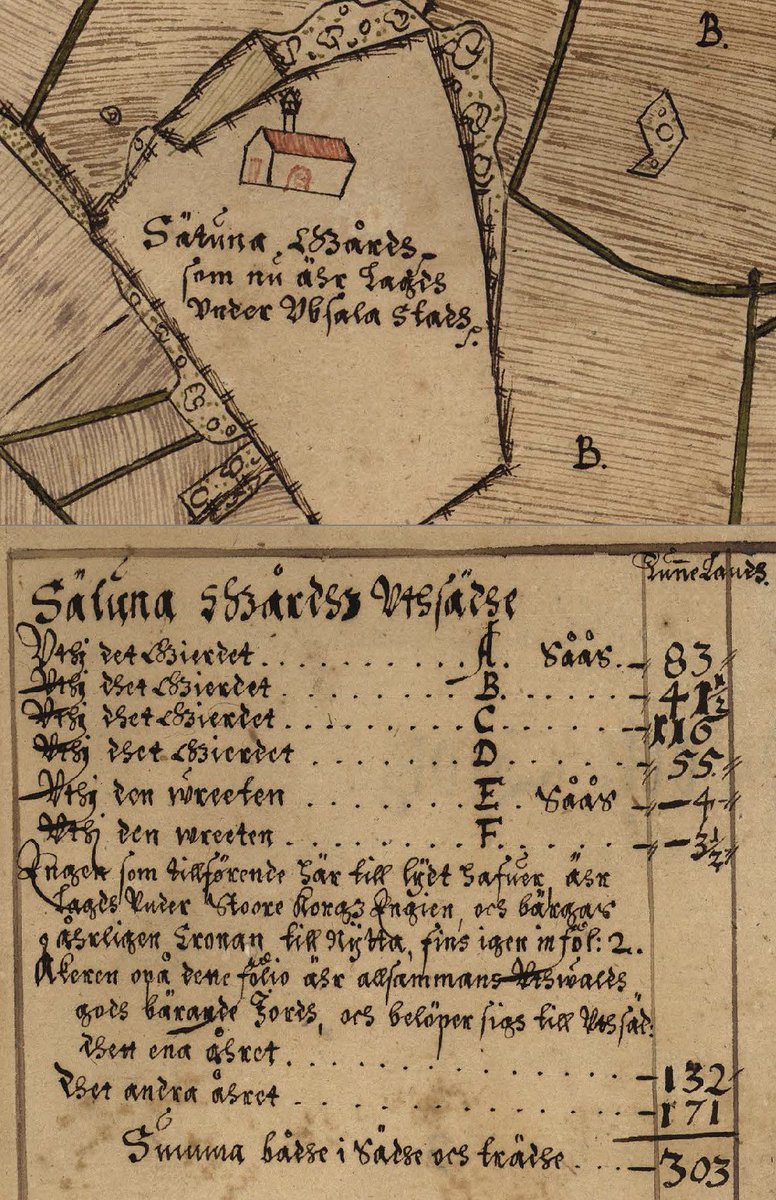 B.
Sätuna Gårdh
som nu ähr lagdh
under Ubsala Stadh.
B.
Tunne Landh.
Sätuna Gårdhz Uthsädhe
Uthj det Gierdet . . . . . . . . . . A. Såås. 83
Uthj dhet Gierdet . . . . . . . . . . B. . . . . . . 41½
Uthj dhet Gierdet . . . . . . . . . . C . . . . . . . 116
Uthj dhet Gierdet . . . . . . . . . . D . . . . . . . 55
Uthj den wreeten . . . . . . . . E . Såås 4
Uthj den wreeten . . . . . . . . . F . . . . . . 3½
Engen som tillförende här till lydt hafuer, ähr
lagdh under Stoore Korgz Engien, och bärgas
åhrligen Cronan till Nÿtta, fins igen in fol: 2.
Åkeren opå dene folio ähr allsammans Uthwaldh
godh bärande Jordh, och belöper sigh till Uthsäd:
dhett ena åhret . . . . . . . . . . 132
dhet andra åhret . . . . . . . . . . 171
Summa bådhe i Sädhe och trädhe . . . 303